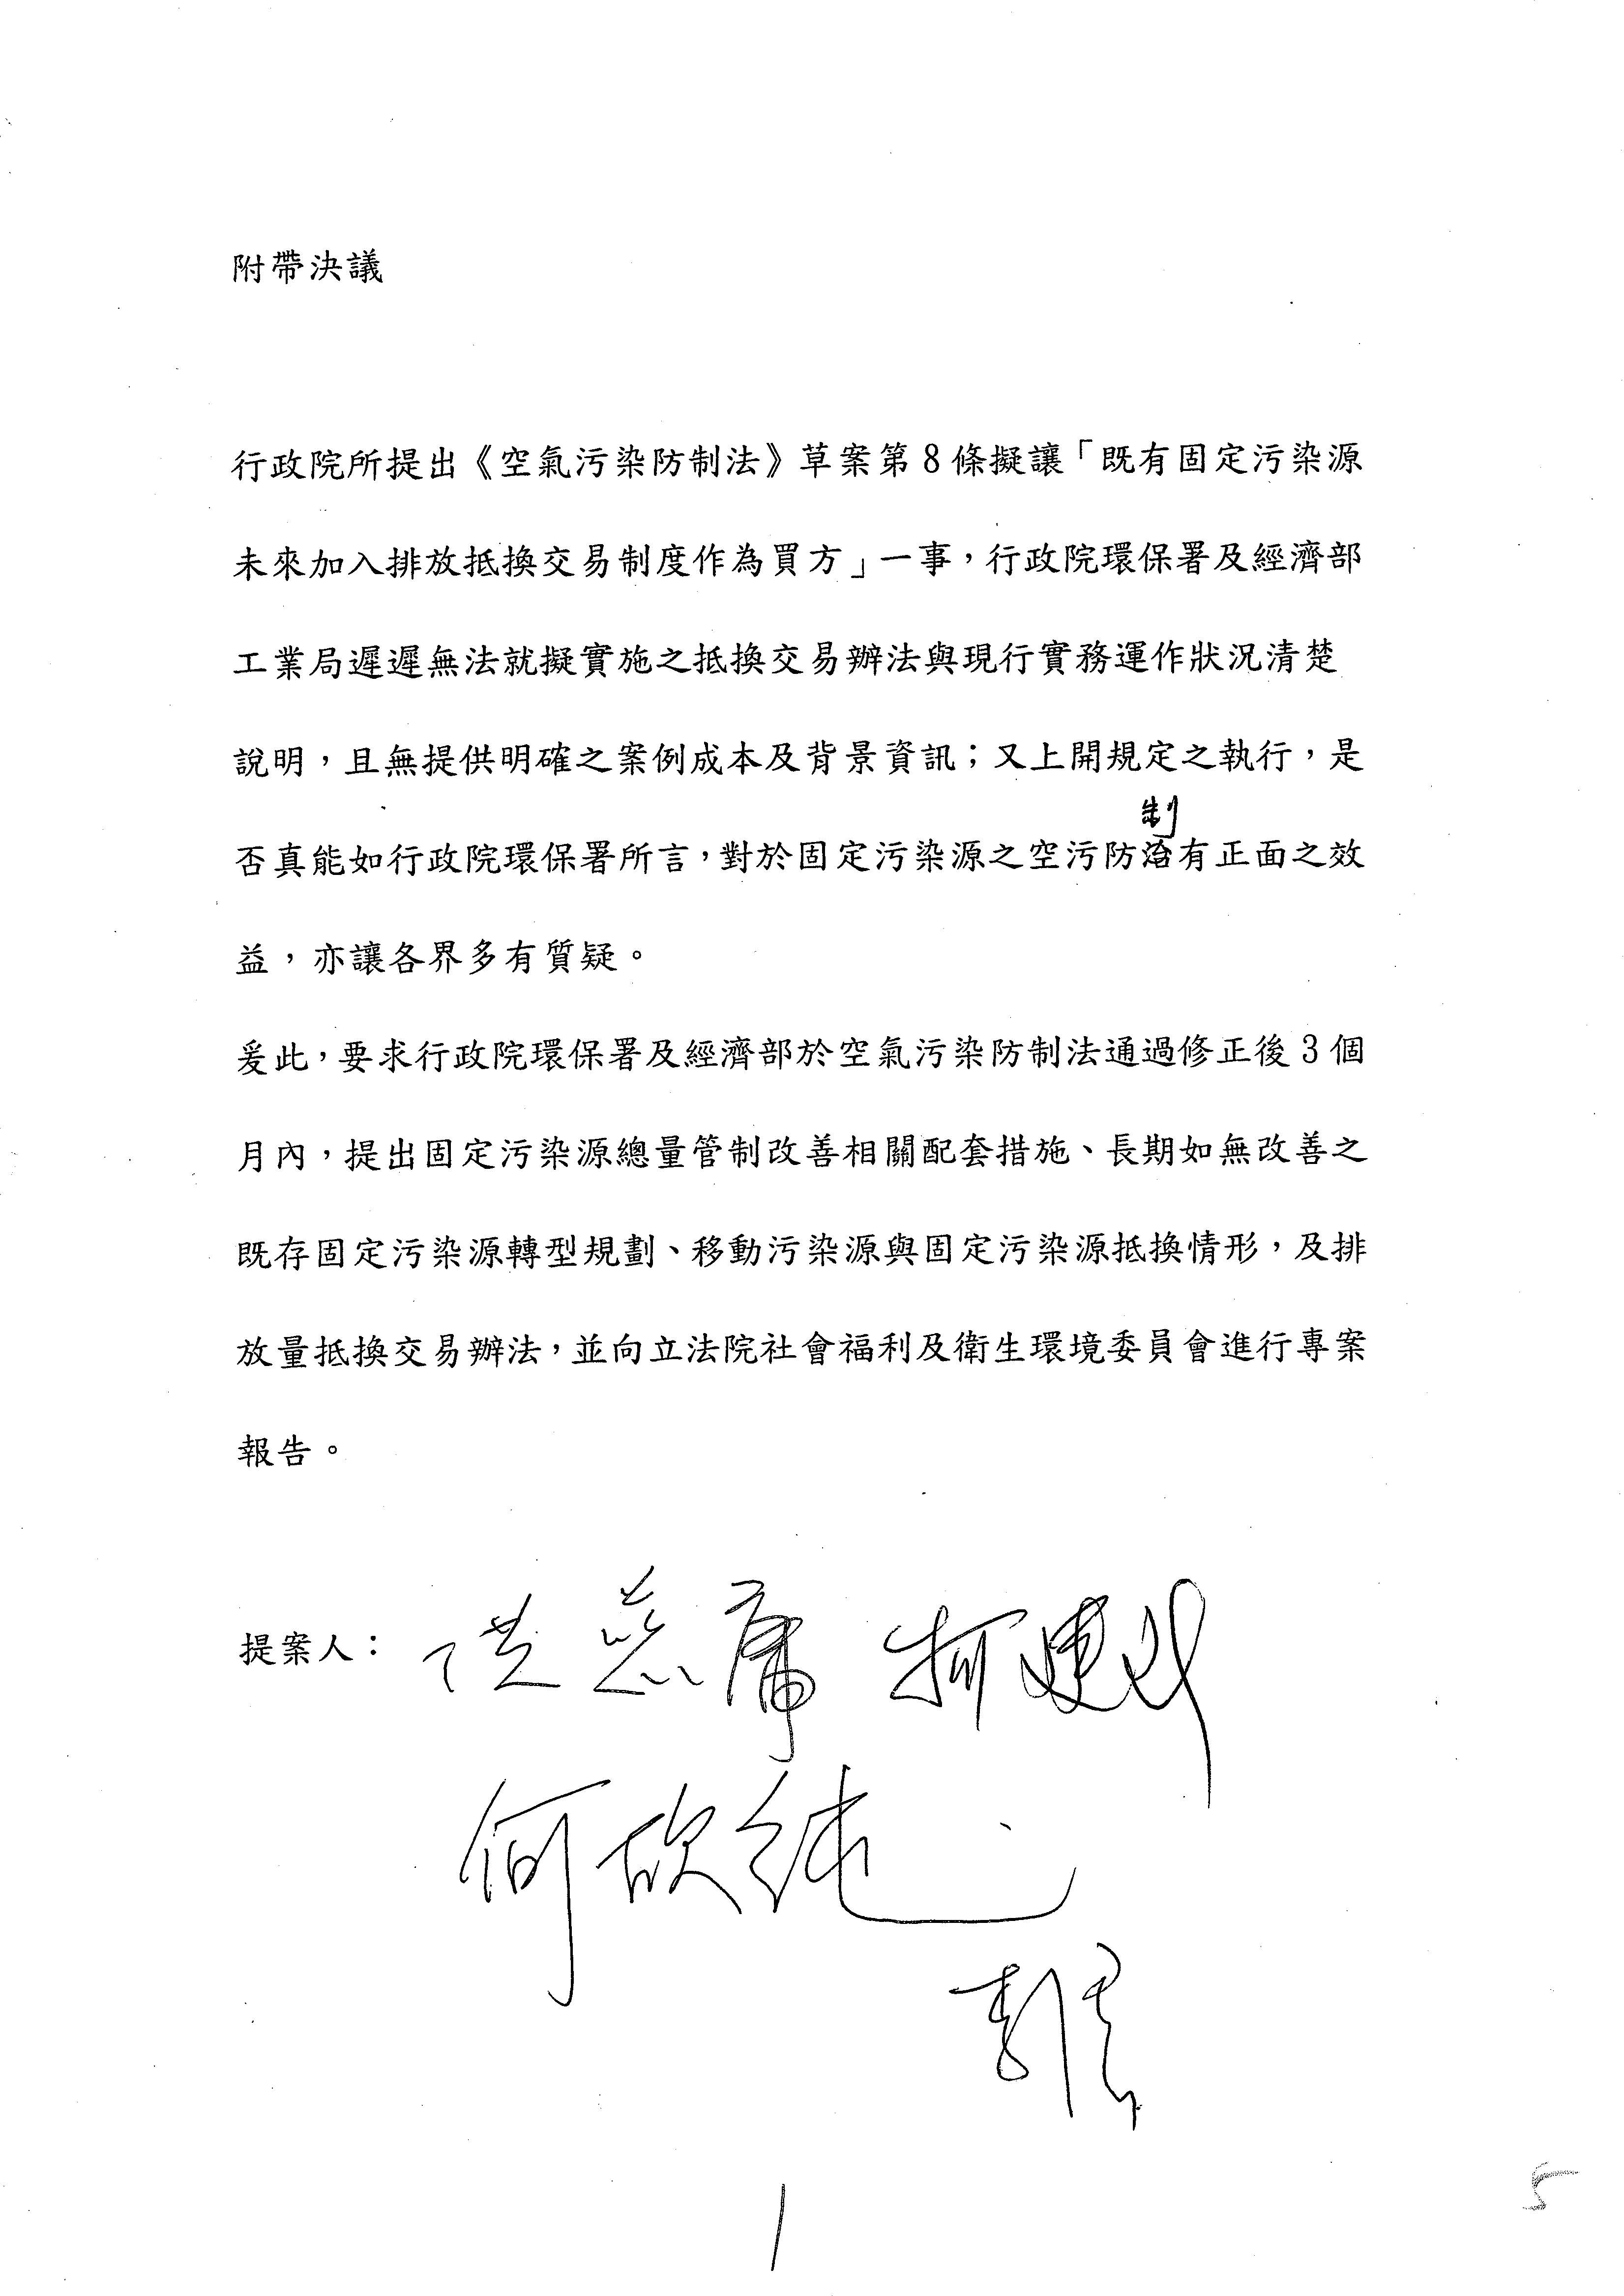 附帶決議
行政院所提出《空氣污染防制法》草案第8條擬讓「既有固定污染源
未來加入排放抵換交易制度作為買方」一事，行政院環保署及經濟部
工業局遲遲無法就擬實施之抵換交易辦法與現行實務運作狀況清楚
說明，且無提供明確之案例成本及背景資訊；又上開規定之執行，是
制
否真能如行政院環保署所言，對於固定污染源之空污防治有正面之效
益，亦讓各界多有質疑。
爰此，要求行政院環保署及經濟部於空氣污染防制法通過修正後3個
月內，提出固定污染源總量管制改善相關配套措施、長期如無改善之
既存固定污染源轉型規劃、移動污染源與固定污染源抵換情形，及排
放量抵換交易辦法，並向立法院社會福利及衛生環境委員會進行專案
報告。
提案人：
何欣純
1
5